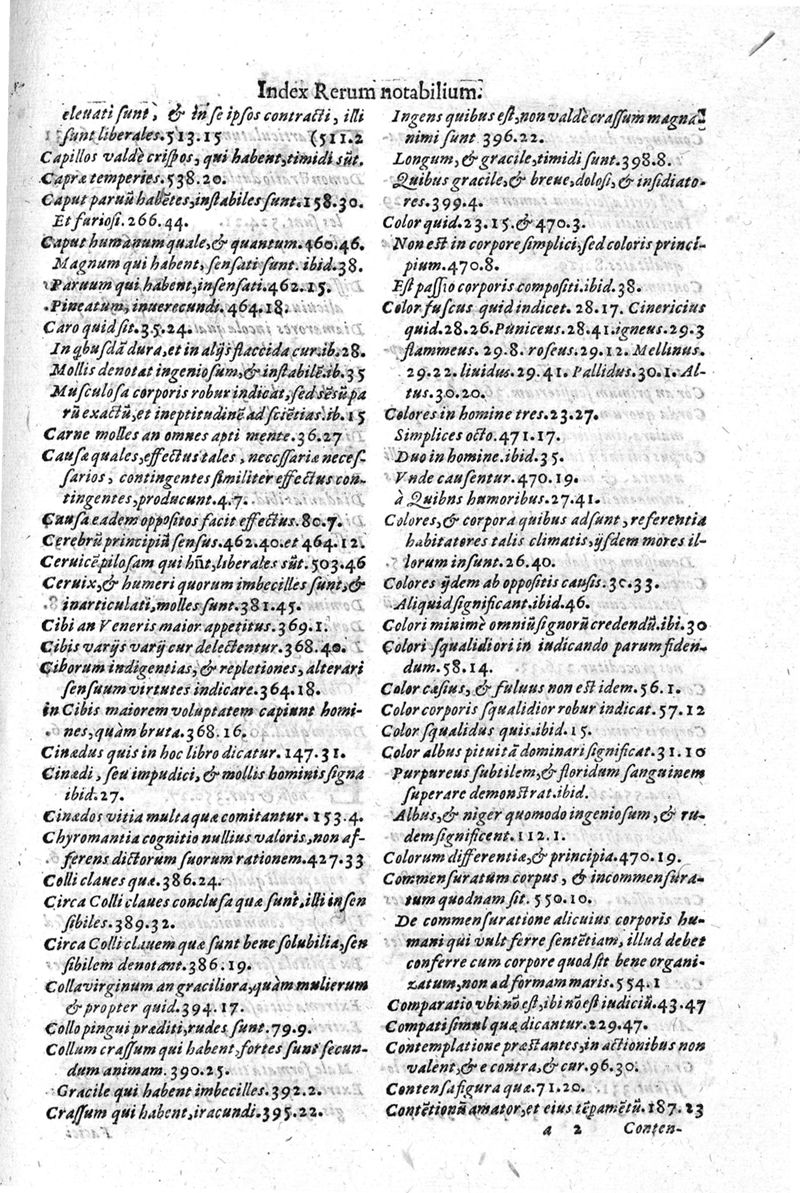 Index Rerum notabilium.
eleuati sunt, & in se ipsos contracti, illi
sunt liberales.513.15 (511.2
Capillos valdè crispos, qui habent, timidi sūt.
Capræ temperies.538.20.
Caput paruū habētes, instabiles sunt.158.30.
Et furiosi.266.44.
Caput humanum quale, & quantum.460.46.
Magnum qui habent, sensati sunt. ibid.38.
Paruum qui habent, insensati.462.15.
Pineatum, inuerecundi.464.18.
Caro quid sit.35.24.
In qbusdā dura, et in alijs flaccida cur.ib.28.
Mollis denotat ingeniosum, & instabilē.ib.35
Musculosa corporis robur indicat, sed sēsū pa
rū exactū, et ineptitudinē ad sciētias.ib.15
Carne molles an omnes apti mente.36.27
Causæ quales, effectus tales, necessariæ neces
sarios, contingentes similiter effectus con-
tingentes, producunt.4.7.
Causa eadem oppositos facit effectus.80.7.
Cerebrū principiū sensus.462.40.et 464.12.
Ceruicē pilosam qui hñt, liberales sūt.503.46
Ceruix, & humeri quorum imbecilles sunt, &
inarticulati, molles sunt.381.45.
Cibi an Veneris maior appetitus.369.1.
Cibis varijs varij cur delectentur.368.40.
Ciborum indigentias, & repletiones, alterari
sensuum virtutes indicare.364.18.
in Cibis maiorem voluptatem capiunt homi-
nes, quàm bruta.368.16.
Cinædus quis in hoc libro dicatur.147.31.
Cinædi, seu impudici, & mollis hominis signa
ibid.27.
Cinædos vitia multa quæ comitantur.153.4.
Chyromantia cognitio nullius valoris, non af-
ferens dictorum suorum rationem.427.33
Colli claues quæ.386.24.
Circa Colli claues conclusa quæ sunt, illi insen
sibiles.389.32.
Circa Colli clauem quæ sunt bene solubilia, sen
sibilem denotant.386.19.
Colla virginum an graciliora, quàm mulierum
& propter quid.394.17.
Collo pingui præditi, rudes sunt.79.9.
Collum crassum qui habent, fortes sunt secun-
dum animam.390.25.
Gracile qui habent imbecilles.392.2.
Crassum qui habent, iracundi.395.22.
Ingens quibus est, non valdè crassum magna
nimi sunt 396.22.
Longum, & gracile, timidi sunt.398.8.
Quibus gracile, & breue, dolosi, & insidiato-
res.399.4.
Color quid.23.15.& 470.3.
Non est in corpore simplici, sed coloris princi-
pium.470.8.
Est passio corporis compositi.ibid.38.
Color fuscus quid indicet. 28.17. Cinericius
quid.28.26. Puniceus.28.41. igneus.29.3
flammeus. 29.8. roseus.29.12. Mellinus.
29.22. liuidus.29.41. Pallidus.30.1. Al-
tus.30.20.
Colores in homine tres.23.27.
Simplices octo.471.17.
Duo in homine.ibid.35.
Vnde causentur.470.19.
à Quibns humoribus.27.41.
Colores, & corpora quibus adsunt, referentia
habitatores talis climatis, ijsdem mores il-
lorum insunt.26.40.
Colores ijdem ab oppositis causis.30.33.
Aliquid significant.ibid.46.
Colori minimè omniū signorū credendū.ibi.30
Colori squalidiori in indicando parum fiden-
dum.58.14.
Color cæsius, & fuluus non est idem.56.1.
Color corporis squalidior robur indicat.57.12
Color squalidus quis.ibid.15.
Color albus pituitā dominari significat.31.10
Purpureus subtilem, & floridum sanguinem
superare demonstrat.ibid.
Albus, & niger quomodo ingeniosum, & ru-
dem significent.112.1.
Colorum differentiæ, & principia.470.19.
Commensuratum corpus, & incommensura-
tum quodnam sit. 550.10.
De commensuratione alicuius corporis hu-
mani qui vult ferre sentētiam, illud debet
conferre cum corpore quod sit bene organi-
zatum, non ad formam maris.554.1
Comparatio vbi nō est, ibi nō est iudiciū.43.47
Compati simul quæ dicantur.229.47.
Contemplatione præstantes, in actionibus non
valent, & e contra, & cur.96.30.
Contensa figura quæ.71.20.
Contētionū amator, et eius tēpamētū.187.23
a 2 Conten-